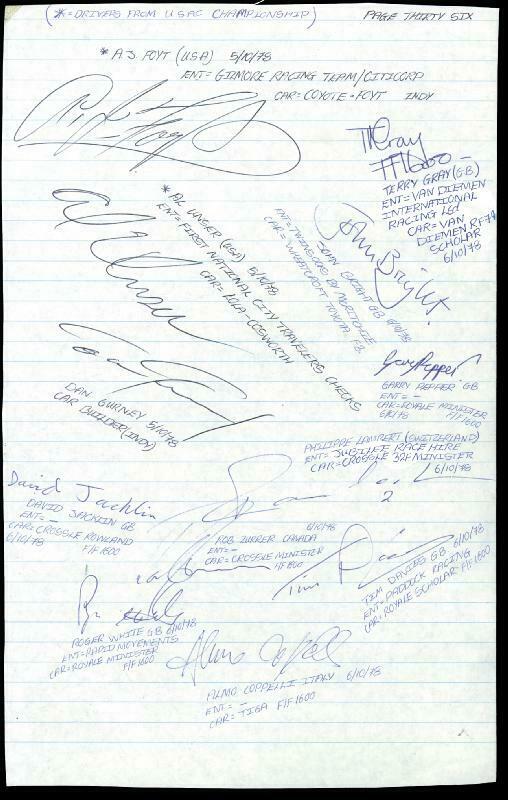 (* = DRIVERS FROM USAC CHAMPIONSHIP)
PAGE THIRTY SIX
* A.J. FOYT (USA) 5/10/78
ENT= GILMORE RACING TEAM/CITICORP
CAR= COYOTE-FOYT INDY
TERRY GRAY (GB)
ENT= VAN DIEMEN
INTERNATIONAL
RACING Ltd
CAR= VAN
DIEMEN RF74
SCHOLAR
6/10/78
* AL UNSER (USA) 5/10/78
ENT= FIRST NATIONAL CITY TRAVELERS CHECKS
CAR= LOLA-COSWORTH
John Bright
JOHN BRIGHT GB 6/10/78
CAR= WHEATCROFT TOYOTA F3
DAN GURNEY 5/10/78
CAR BUILDER (INDY)
Garry Pepper
GARRY PEPPER GB
ENT= -
CAR= ROYALE MINISTER
6/10/78 F/F1600
PHILIPPE LAMPERT (SWITZERLAND)
ENT= JUBILEE RACE HIRE
CAR= CROSSLE 32F MINISTER
6/10/78
David Jacklin
DAVID JACKLIN GB
ENT= -
CAR= CROSSLE ROWLAND
6/10/78 F/F1600
6/10/78
ROB ZURRER CANADA
ENT= -
CAR= CROSSLE MINISTER
F/F1600
Tim
TIM DAVIES GB 6/10/78
ENT= PADDOCK RACING
CAR= ROYALE SCHOLAR F/F1600
ROGER WHITE GB 6/10/78
ENT= RAPID MOVEMENTS
CAR= ROYALE MINISTER
F/F1600
Almo Coppelli
ALMO COPPELLI ITALY 6/10/78
ENT= -
CAR= TIGA F/F1600